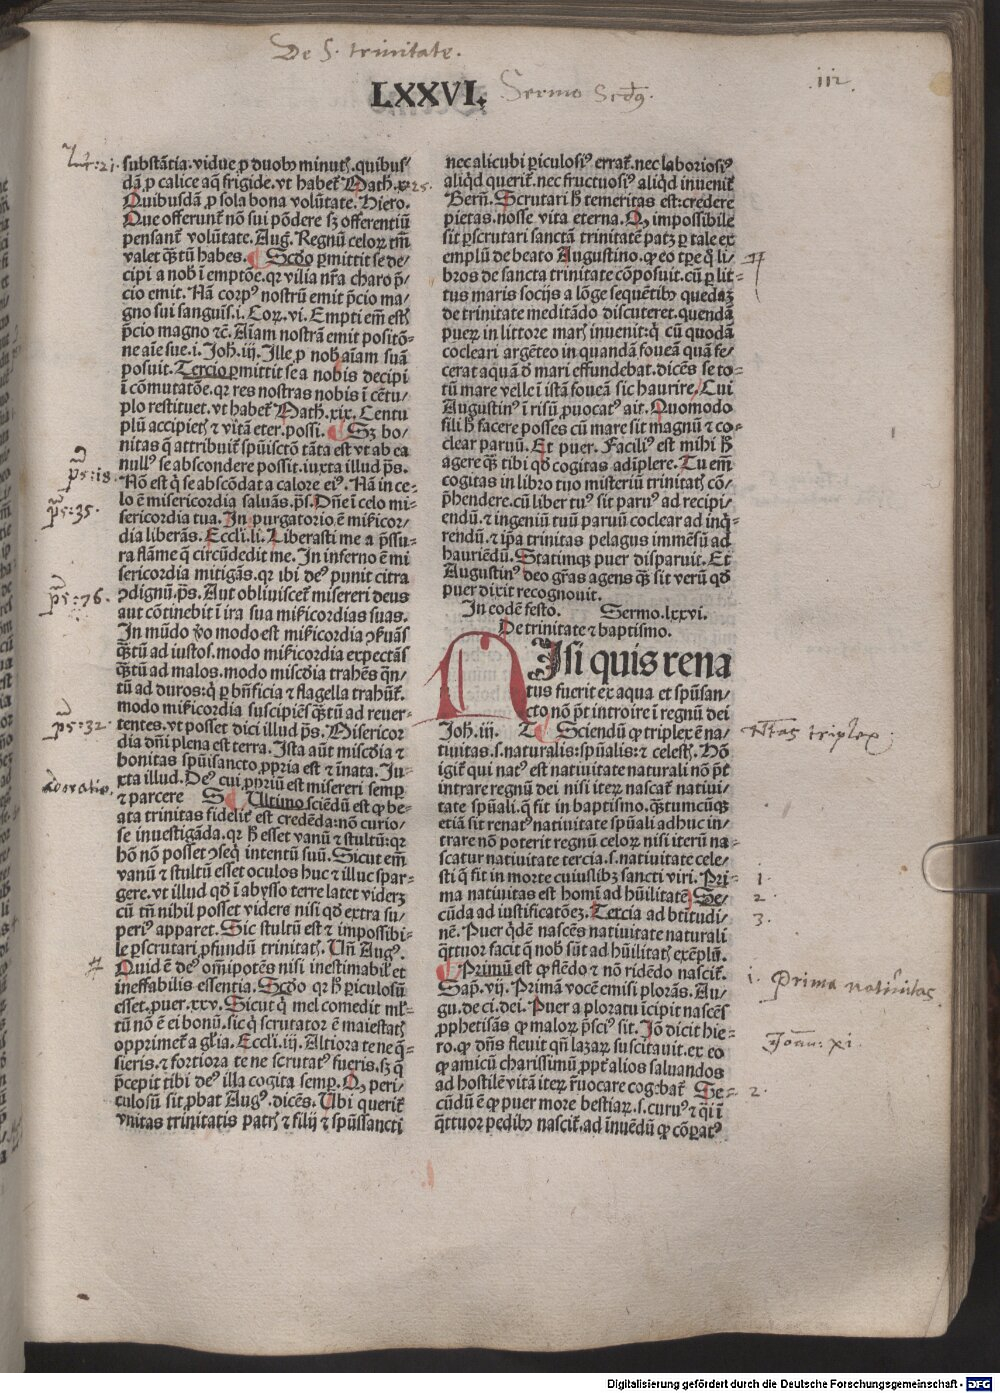 De S. trinitate.
LXXVI. Sermo Scdꝰ.
iii.
substātia. vidue ꝓ duobꝰ minutꝭ. quibus/
dā ꝓ calice aq̄ frigide. vt habet᷑ Math. x
Quibusdā ꝓ sola bona volūtate. Hiero.
Que offerunt᷑ nō sui pōdere sꝫ offerentiū
pensant᷑ volūtate. Aug. Regnū celoꝝ tm̄
valet qͣꝫtū habes. Scd̓o ꝑmittit se de/
cipi a nob̓ ī emptōe. qꝛ vilia nr̄a charo p̄/
cio emit. Nā corpꝰ nostrū emit p̄cio ma/
gno sui sanguīs. i. Coꝝ. vi. Empti em̄ estꝭ
p̄cio magno ⁊c̄. Aīam nostrā emit positō/
ne aīe sue. i. Joh. iij. Ille ꝓ nob̓ aīam suā
posuit. Tercio ꝑmittit se a nobis decipi
ī cōmutatōe. qꝛ res nostras nobis ī cētu/
plo restituet. vt habet᷑ Math. xix. Centu
plū accipietꝭ ⁊ vitā eter. possi. Sꝫ bo/
nitas q̄ attribuit᷑ spūiscto tāta est vt ab ea
nullꝰ se abscondere possit. iuxta illud ps̄.
Nō est q̇ se abscōdat a calore eiꝰ. Nā in ce/
lo ē misericordia saluās. ps̄. Dn̄e ī celo mi/
sericordia tua. In purgatorio ē mīcor/
dia liberās. Eccli. li. Liberasti me a p̄ssu/
ra flāme q̄ circūdedit me. In inferno ē mi
sericordia mitigās. qꝛ ibi deꝰ punit citra
ꝯdignū. ps̄. Aut obliuiscet᷑ misereri deus
aut cōtinebit ī ira sua mīcordias suas.
In mūdo v̓o modo est mīcordia ꝯẜuās
qͣꝫtū ad iustos. modo mīcordia expectās
qͣꝫtū ad malos. modo miscd̓ia trahēs qͣn/
tū ad duros: q̇ ꝑ bn̄ficia ⁊ flagella trahūt᷑.
modo mīcordia suscipiēs qͣꝫtū ad reuer/
tentes. vt posset dici illud ps̄. Misericor
dia dn̄i plena est terra. Ista aūt miscd̓ia ⁊
bonitas spūisancto ꝓpria est ⁊ īnata. Ju/
xta illud. Deꝰ cui ꝓpriū est misereri semꝑ
⁊ parcere S Ultimo sciēdū est ꝙ be/
ata trinitas fidelit᷑ est credēda: nō curio/
se inuestigāda. qꝛ h̓ esset vanū ⁊ stultū: qꝛ
hō nō posset ꝯseq̇ intentū suū. Sicut em̄
vanū ⁊ stultū esset oculos huc ⁊ illuc spar/
gere. vt illud qd̓ ī abysso terre latet videꝝ
cū tn̄ nihil posset videre nisi qd̓ extra su/
periꝰ apparet. Sic stultū est ⁊ impossibi/
le ꝑscrutari ꝓfundū trinitatꝭ. Un̄ Augꝰ.
Quid ē deꝰ om̄ipotēs nisi inestimabil̓ et
ineffabilis essentia. Scd̓o qꝛ h̓ ꝑiculosū
esset. ꝓuer. xxv. Sicut q̇ mel comedit ml̓/
tū nō ē ei bonū. sic q̇ scrutator ē maiestatꝭ
opprimet᷑ a gl̓ia. Eccli. iij. Altiora te ne q̄/
sieris. ⁊ fortiora te ne scrutatꝰ fueris. sꝫ q̄
p̄cepit tibi deꝰ illa cogita semꝑ. Q̇ peri/
culosū sit ꝓbat Augꝰ. dicēs. Ubi querit᷑
vnitas trinitatis patrꝭ ⁊ filij ⁊ spūssancti
nec alicubi ꝑiculosiꝰ errat᷑. nec laboriosiꝰ
aliqd̓ querit᷑. nec fructuosiꝰ aliqd̓ inuenit᷑
Bern̄. Scrutari h̓ temeritas est: credere
pietas. nosse vita eterna. Q̇ impossibile
sit ꝑscrutari sanctā trinitatē patꝫ ꝑ tale ex
emplū de beato Augustino. ꝙ eo tꝑe q̇ li/
bros de sancta trinitate cōposuit. cū ꝑ lit/
tus maris socijs a lōge sequētibꝰ quedaꝫ
de trinitate meditādo discuteret. quendā
pueꝝ in littore marꝭ inuenit: q̇ cū quodā
cocleari argēteo in quandā foueā quā fe/
cerat aquā d̓ mari effundebat. dicēs se to/
tū mare velle ī istā foueā sic haurire. Cui
Augustinꝰ ī risū ꝓuocatꝰ ait. Quomodo
fili h̓ facere posses cū mare sit magnū ⁊ co/
clear paruū. Et puer. Faciliꝰ est mihi h̓
agere qͣꝫ tibi qd̓ cogitas adīplere. Tu em̄
cogitas in libro tuo misteriū trinitatꝭ cō/
p̄hendere. cū liber tuꝰ sit paruꝰ ad recipi/
endū. ⁊ ingeniū tuū paruū coclear ad inq̇/
rendū. ⁊ ip̄a trinitas pelagus immēsū ad
hauriēdū. Statimqꝫ puer disparuit. Et
Augustinꝰ deo gr̄as agens qͣꝫ sit verū qd̓
puer dixit recognouit.
In eodē festo. Sermo. lxxvi.
De trinitate ⁊ baptismo.
NIsi quis rena
tus fuerit ex aqua et spūsan/
cto nō pōt introire ī regnū dei
Joh. iij. T Sciendū ꝙ triplex ē na/
tiuitas. s. naturalis: spūalis: ⁊ celestꝭ. Hō
igit᷑ qui natꝰ est natiuitate naturali nō pōt
intrare regnū dei nisi iteꝝ nascat᷑ natiui/
tate spūali. q̄ fit in baptismo. qͣꝫtumcūqꝫ
etiā sit renatꝰ natiuitate spūali adhuc in/
trare nō poterit regnū celoꝝ nisi iterū na/
scatur natiuitate tercia. s. natiuitate cele/
sti q̄ fit in morte cuiuslibꝫ sancti viri. Pri/
ma natiuitas est homī ad hūilitatē Se/
cūda ad iustificatōeꝫ. Tercia ad btītudi/
nē. Puer q̇dē nascēs natiuitate naturali
qͣttuor facit q̄ nob̓ sūt ad hūilitatꝭ exēplū.
Primū est ꝙ flēdo ⁊ nō ridēdo nascit᷑.
Sap̄. vij. Primā vocē emisi plorās. Au/
gu. de ci. dei. Puer a ploratu īcipit nascēs
ꝓphetisās ꝙ maloꝝ p̄sciꝰ sit. Jō dicit hie/
ro. ꝙ dn̄s fleuit qn̄ lazaꝝ suscitauit. ex eo
ꝙ amicū charissimū ꝓpt᷑ alios saluandos
ad hostilē vitā iteꝝ r̓uocare cogebat᷑. Se/
cūdū ē ꝙ puer more bestiaꝝ. s. curuꝰ ⁊ q̇i ī
qͣttuor pedibꝰ nascit᷑. ad īnuēdū ꝙ cōꝑatꝰ
ps: 18.
ps: 35.
ps: 76.
ps: 32.
Adoratio.
Ntas triplex.
1
2
3.
i. Prima nativitas
Joan: xi.
2.
Digitalisierung gefördert durch die Deutsche Forschungsgemeinschaft - DFG